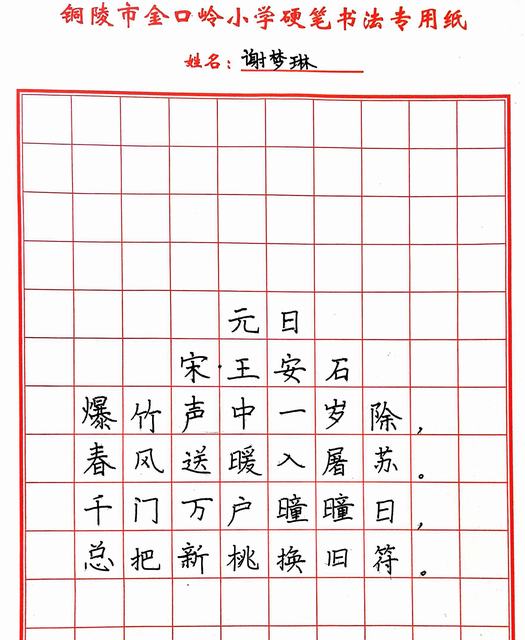 铜陵市金口岭小学硬笔书法专用纸
姓名：谢梦琳
元日
宋·王安石
爆竹声中一岁除，
春风送暖入屠苏。
千门万户曈曈日，
总把新桃换旧符。